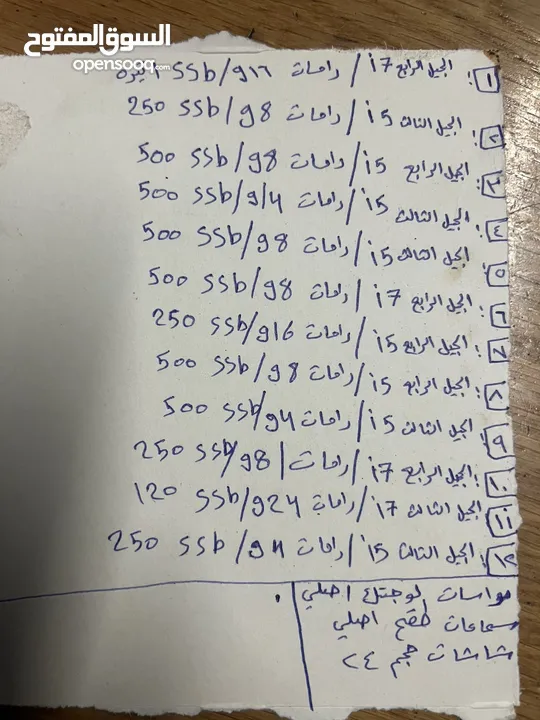 السوق المفتوح
opensooq.com
١: الجيل الرابع i7 / رامات 16g/ssb
٢: الجيل الثالث i5 / رامات 8g/ssb 250
٣: الجيل الرابع i5 / رامات 8g/ssb 500
٤: الجيل الثالث i5 / رامات 4/g/ssb 500
٥: الجيل الثالث i5 / رامات 8g/ssb 500
٦: الجيل الرابع i7 / رامات 8g/ssb 500
٧: الجيل الرابع i5 / رامات 16g/ssb 250
٨: الجيل الرابع i5 / رامات 8g/ssb 500
٩: الجيل الثالث i5 / رامات 4g/ssb 500
١٠: الجيل الرابع i7 / رامات 8g/ssb 250
١١: الجيل الثالث i7 / رامات 24g/ssb 120
١٢: الجيل الثالث i5 / رامات 4g/ssb 250
لوجتك اصلي
سماعات طقم اصلي
شاشات حجم ٢٤